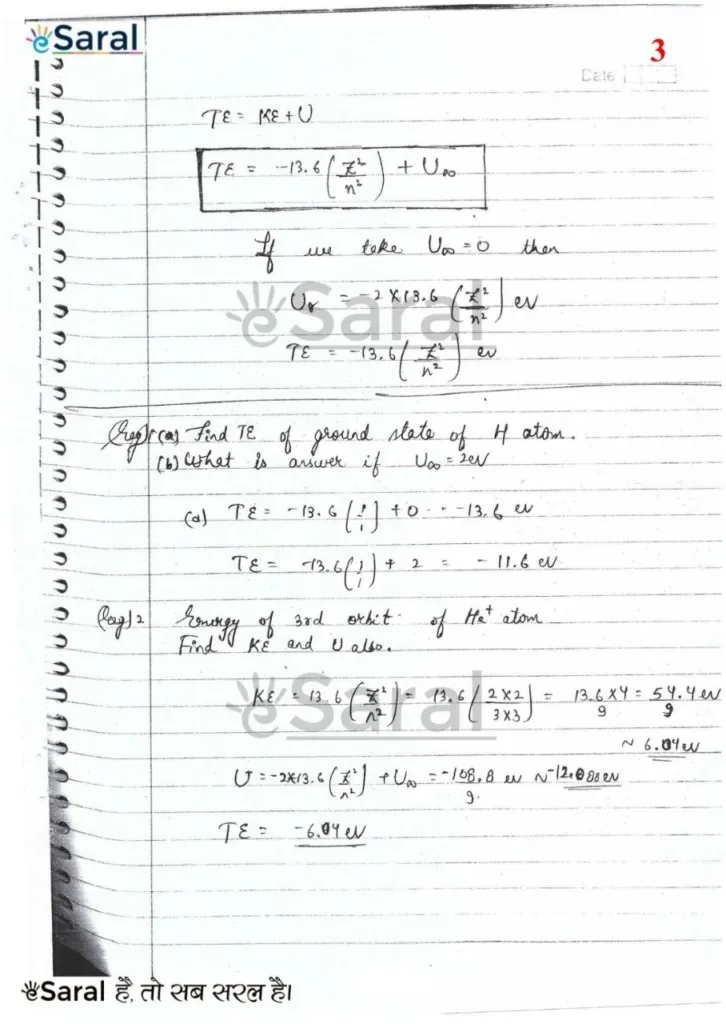 eSaral
3
Date
TE = KE + U
TE = -13.6 (Z²/n²) + U∞
If we take U∞ = 0 then
Uγ = -2 × 13.6 (Z²/n²) ev
eSaral
TE = -13.6 (Z²/n²) ev
(a) Find TE of ground state of H atom.
(b) What is answer if U∞ = 2ev
(a) TE = -13.6 (1/1) + 0 -- -13.6 ev
TE = -13.6 (1/1) + 2 = -11.6 ev
2 Energy of 3rd orbit of He⁺ atom
Find KE and U also.
KE = 13.6 (Z²/n²) = 13.6 (2×2/3×3) = 13.6×4/9 = 54.4/9 ev
eSaral
~ 6.04 ev
U = -2×13.6 (Z²/n²) + U∞ = -108.8/9 ev ~ -12.088 ev
TE = -6.04 ev
eSaral है, तो सब सरल है।